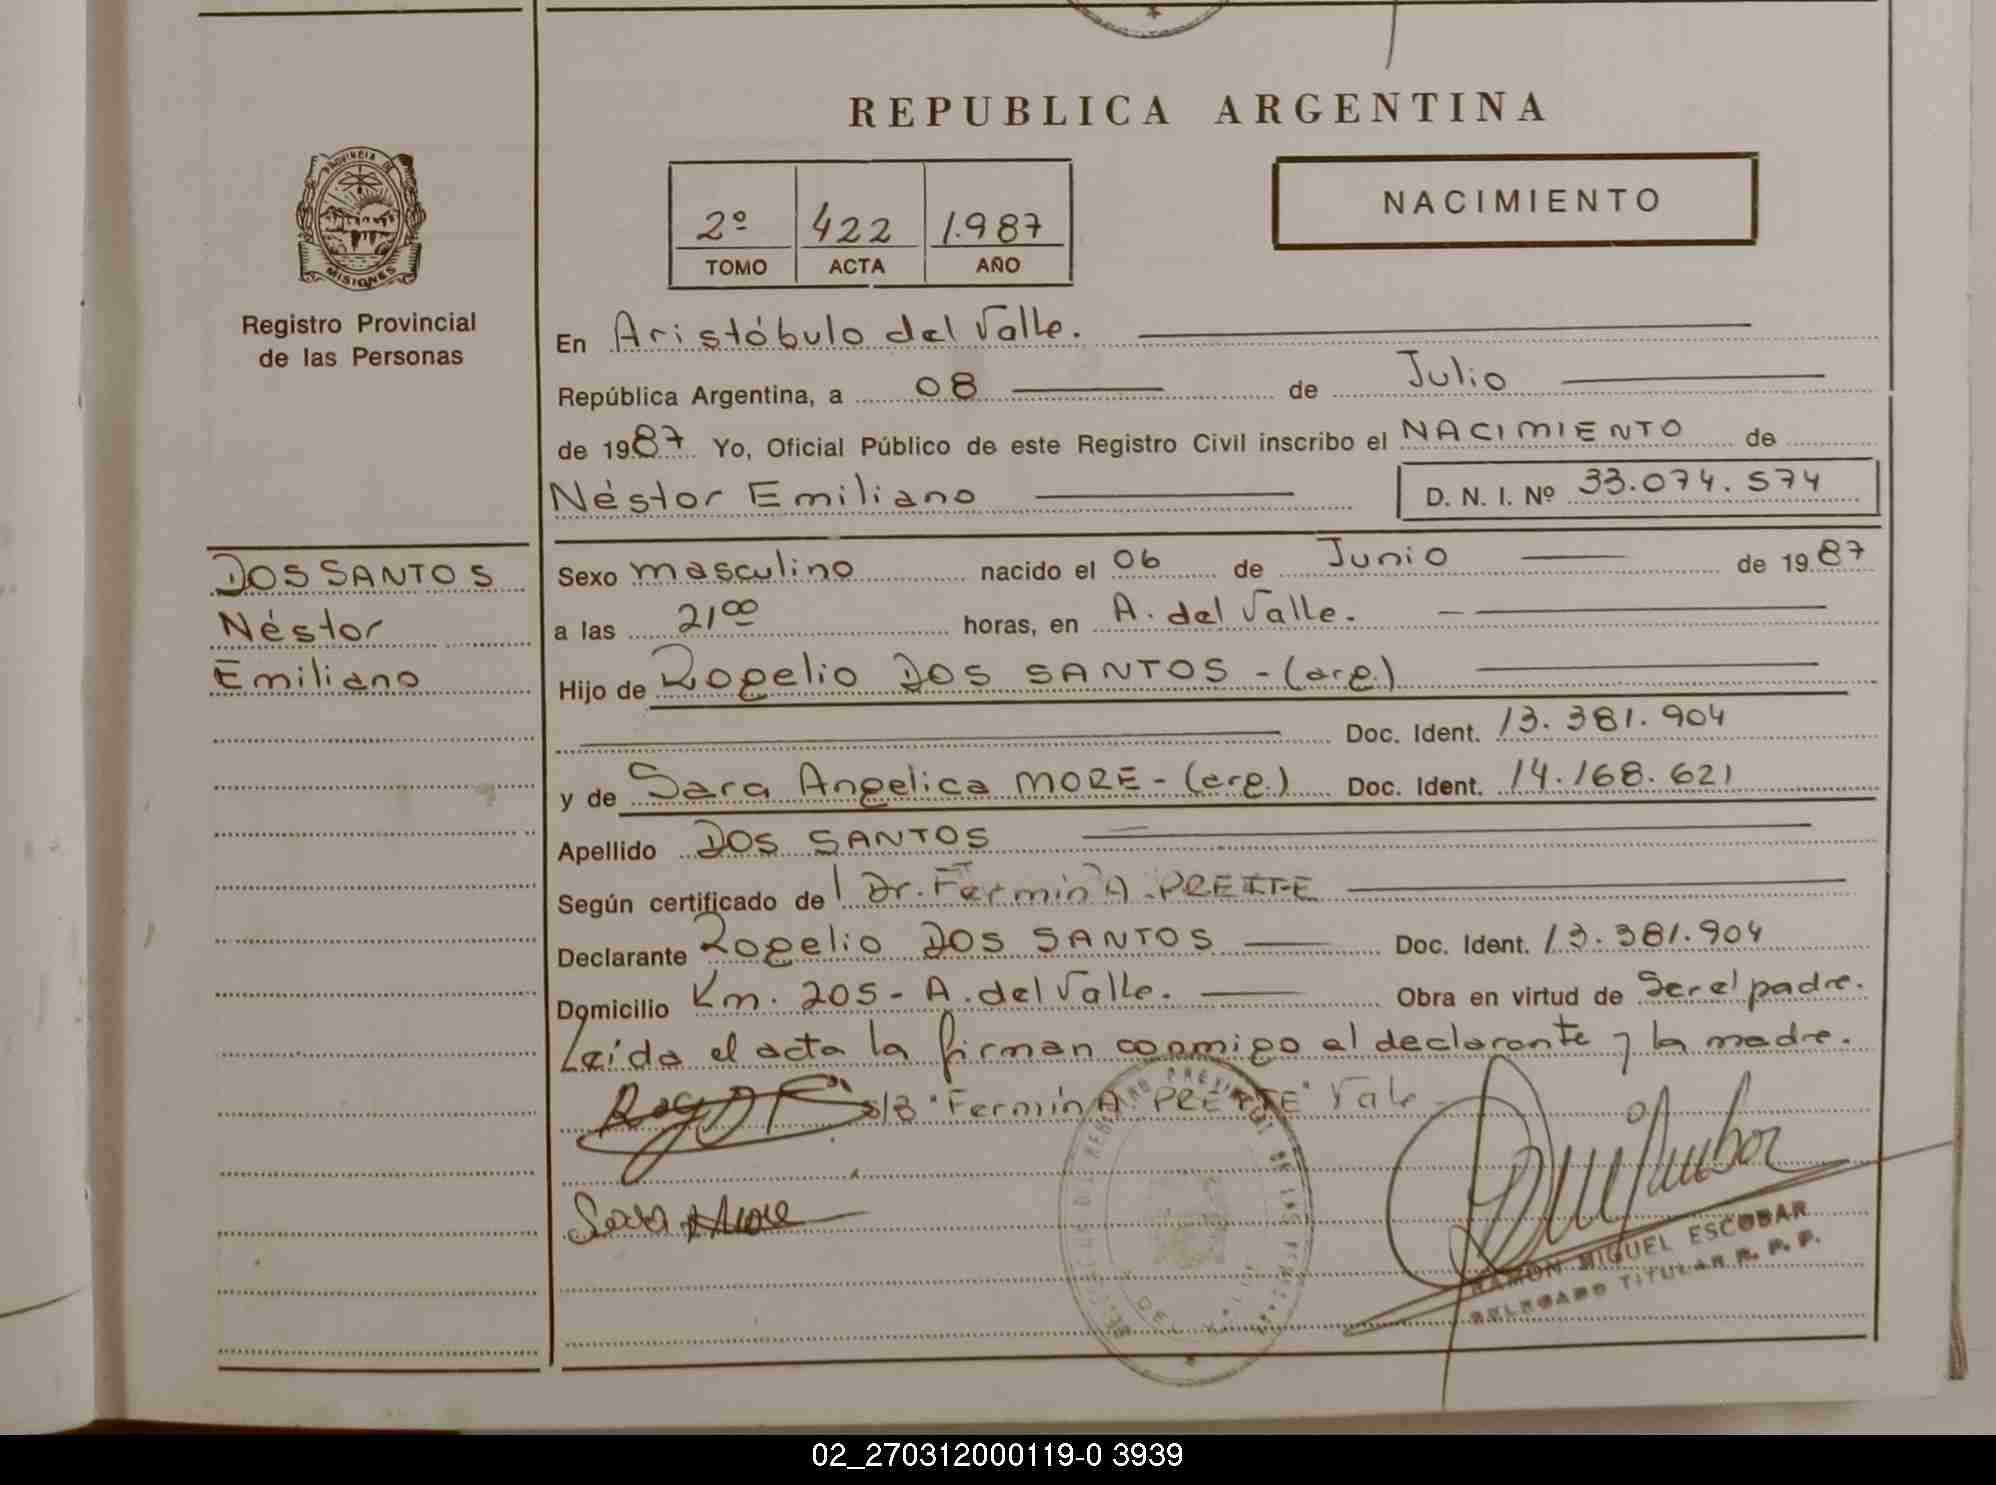 REPUBLICA ARGENTINA
PROVINCIA DE
MISIONES
Registro Provincial
de las Personas
2º 422 1.987
TOMO ACTA AÑO
NACIMIENTO
En Aristóbulo del Valle.
República Argentina, a 08 de Julio
de 1987 Yo, Oficial Público de este Registro Civil inscribo el NACIMIENTO de
Néstor Emiliano D. N. I. Nº 33.074.574
DOS SANTOS
Néstor
Emiliano
Sexo masculino nacido el 06 de Junio de 1987
a las 21 00 horas, en A. del Valle.
Hijo de Rogelio DOS SANTOS - (arg.)
Doc. Ident. 13.381.904
y de Sara Angelica MORE - (arg.) Doc. Ident. 14.168.621
Apellido DOS SANTOS
Según certificado de Dr. Fermin A. PREITE
Declarante Rogelio DOS SANTOS Doc. Ident. 13.381.904
Domicilio Km. 205 - A. del Valle. Obra en virtud de Ser el padre.
Leída el acta la firman conmigo el declarante y la madre.
S/B "Fermin A. PREITE" Vale
Sara More
RAMON MIGUEL ESCOBAR
DELEGADO TITULAR R. P. P.
02_270312000119-0 3939